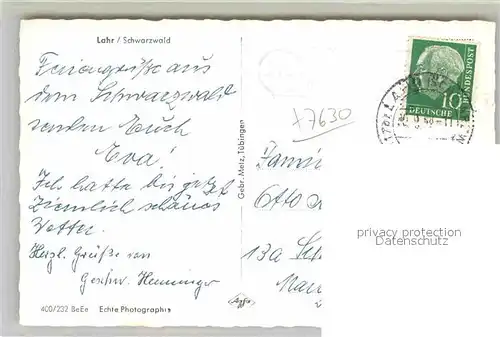 Lahr / Schwarzwald
Feriengrüße aus
dem Schwarzwald
senden Euch
Eva!
Ich hatte bis jetzt
ziemlich schönes
Wetter.
Herzl. Grüße von
Geschw. Henninger
400/232 BeEe Echte Photographie
Gebr. Metz, Tübingen
Agfa
7630
10
DEUTSCHE
BUNDESPOST
Otto
13a
privacy protection
Datenschutz